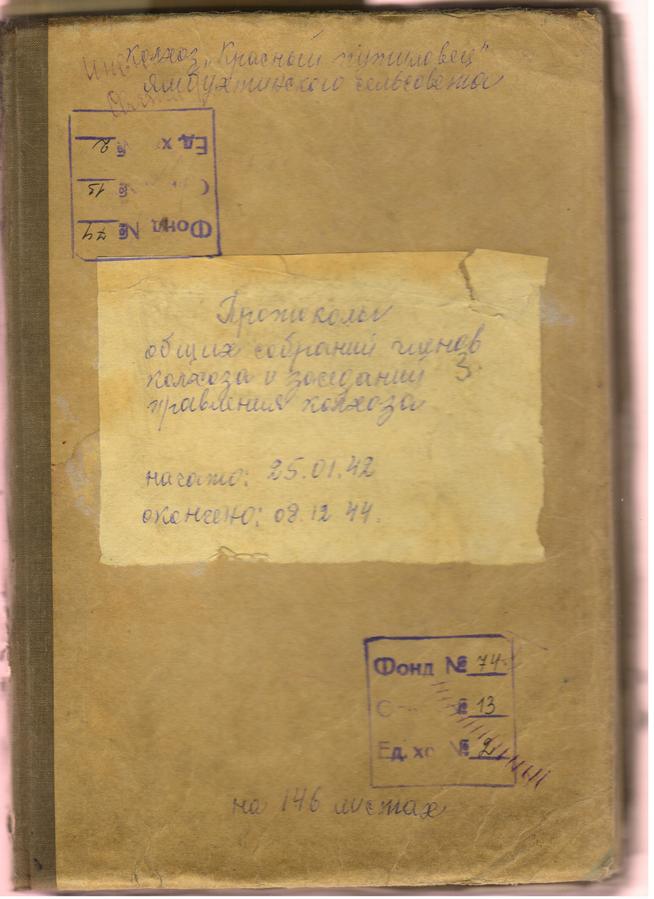 Колхоз „Красный путиловец"
Ямбухтинского сельсовета
Ед. х №2
№13
Фонд №74
Протоколы
общих собраний членов
колхоза и заседаний 3
правления колхоза
начато: 25.01.42
окончено: 09.12.44.
Фонд №74
С №13
Ед. хр №2
на 146 листах